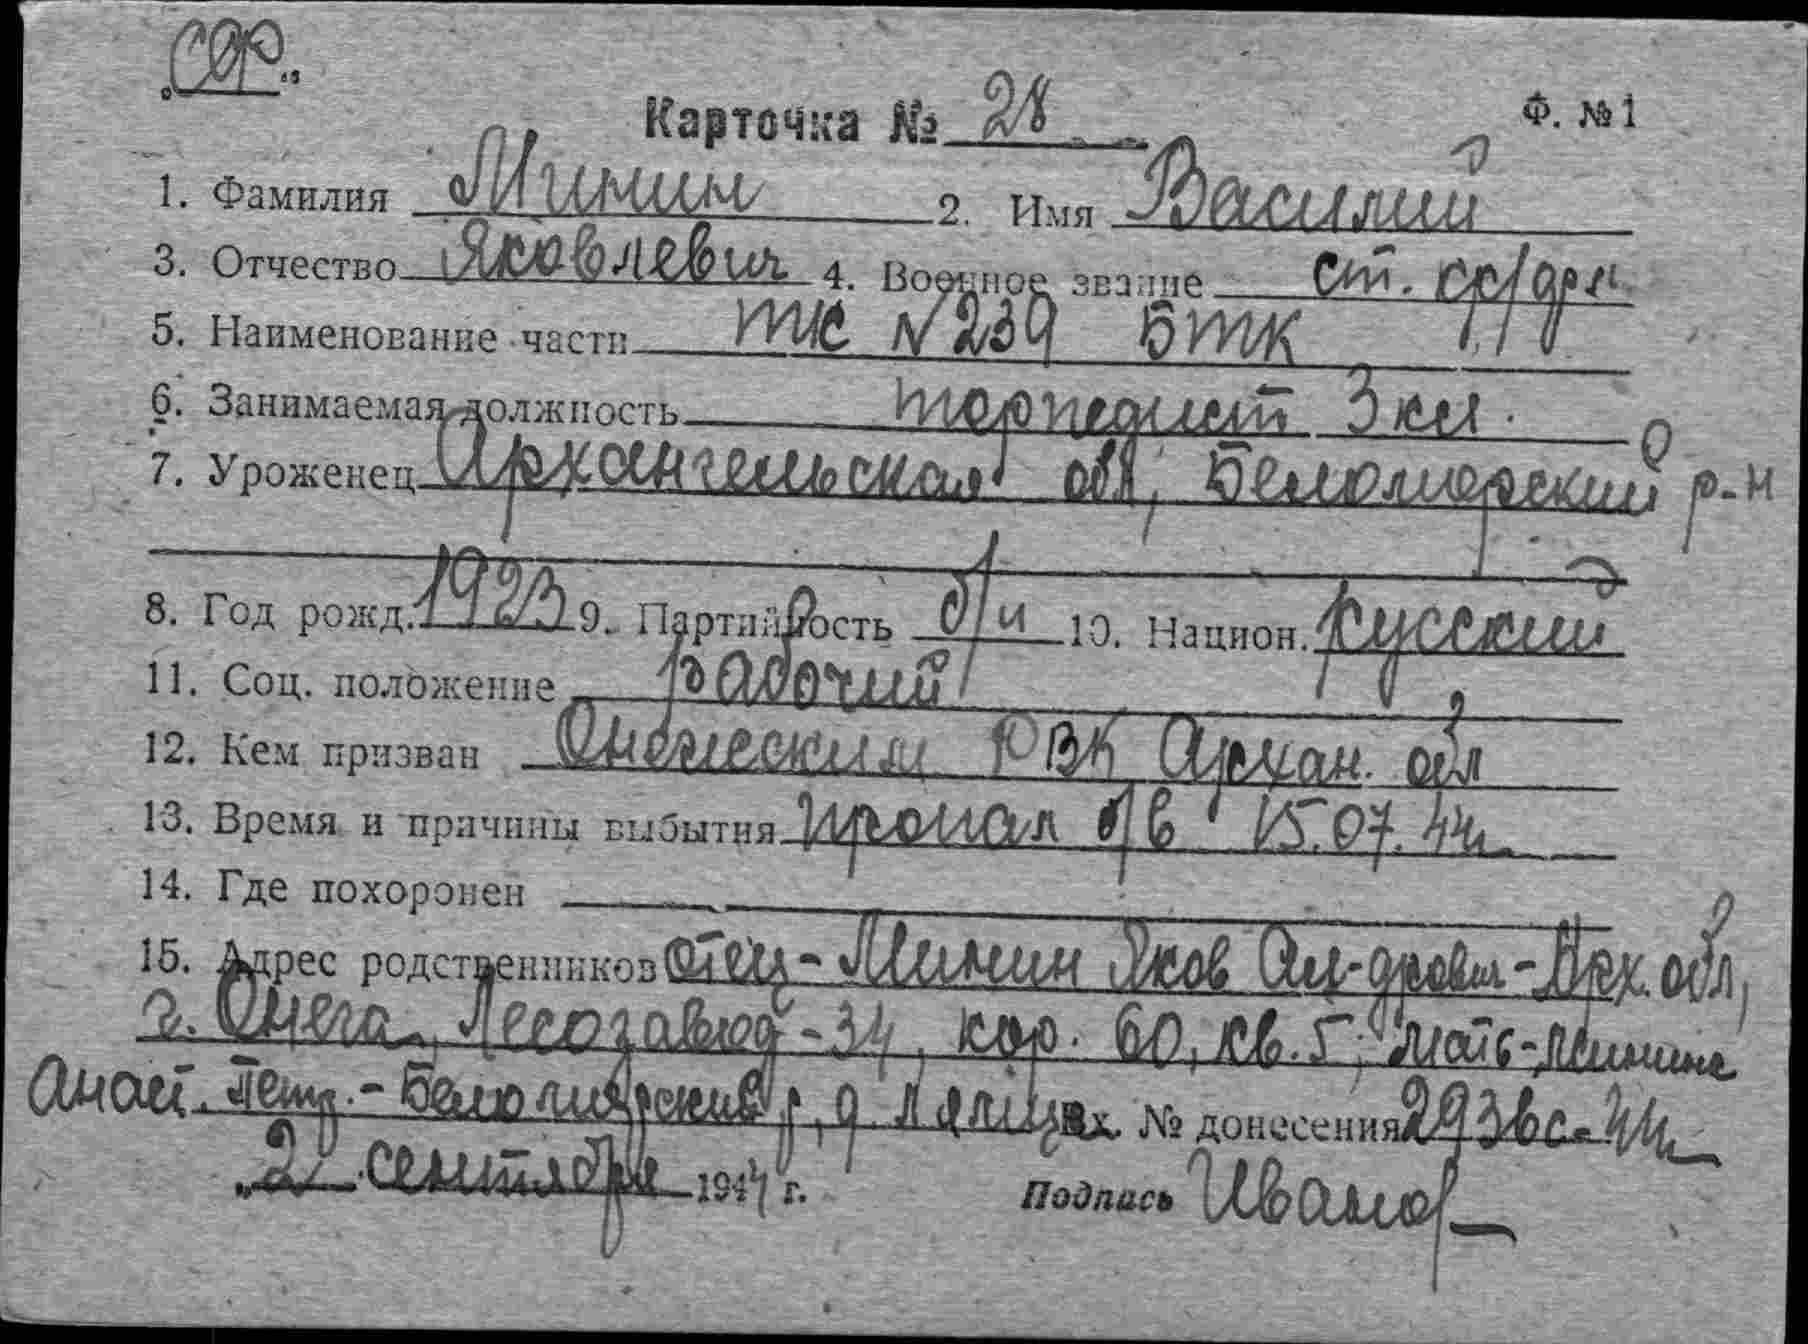 Карточка № 28 Ф. №1
1. Фамилия Минин 2. Имя Василий
3. Отчество Яковлевич 4. Военное звание ст. кр/фл
5. Наименование части ТК N 239 БТК
6. Занимаемая должность торпедист 3 кл.
7. Уроженец Архангельская обл, Беломорский р-н
8. Год рожд. 1923 9. Партийность б/п 10. Национ. русский
11. Соц. положение рабочий
12. Кем призван Онежским РВК Архан. обл
13. Время и причины выбытия пропал б/в 15.07.44г.
14. Где похоронен
15. Адрес родственников отец - Минин Яков Ал-дрович - Арх. обл,
г. Онега, Лесозавод - 34, кор. 60, кв. 5, мать - Минина
Анаст. Петр. - Беломорский р, д. Вх. № донесения 293вс - 44г
„2" сентября 1944 г. Подпись Иванов